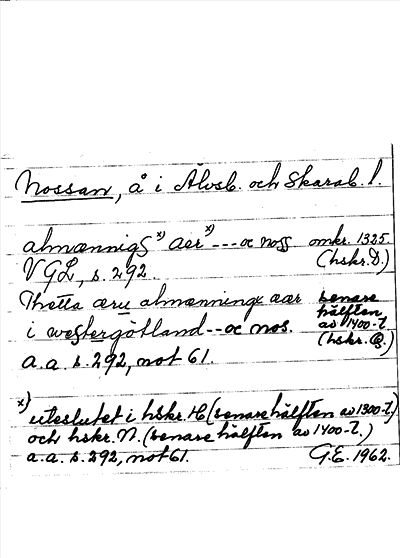 Nossan, å i Älvsb. och Skarab. l.
almænnigS x) aer x) --- oc noss omkr. 1325
VGL, s. 292. (hskr. D.)
Thetta æru almænninga aar senare
i westergötland -- oc nos. hälften av 1400-t.
a.a. s. 292, not 61. (hskr. Q.)
x) uteslutet i hskr. H (senare hälften av 1300-t.)
och hskr. N. (senare hälften av 1400-t.)
a.a. s. 292, not 61. G.E. 1962.